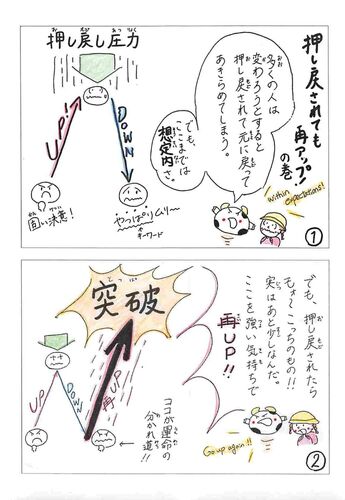 押し戻されても
再アップ！
の巻
多くの人は
変わろうとすると
押し戻されて元に戻って
あきらめてしまう。
でも、
ここまでは
想定内さ。
within
expectations!
押し戻し圧力
UP!
DOWN
固い決意！
やっぱりムリ〜
キーワード
①
でも、押し戻されたら
そぉ〜こっちのもの!!
実はあと少しなんだ。
ここを強い気持ちで
再UP!!
突破
UP
DOWN
再UP
ココが運命の
分かれ道!!
Go up again!!
②